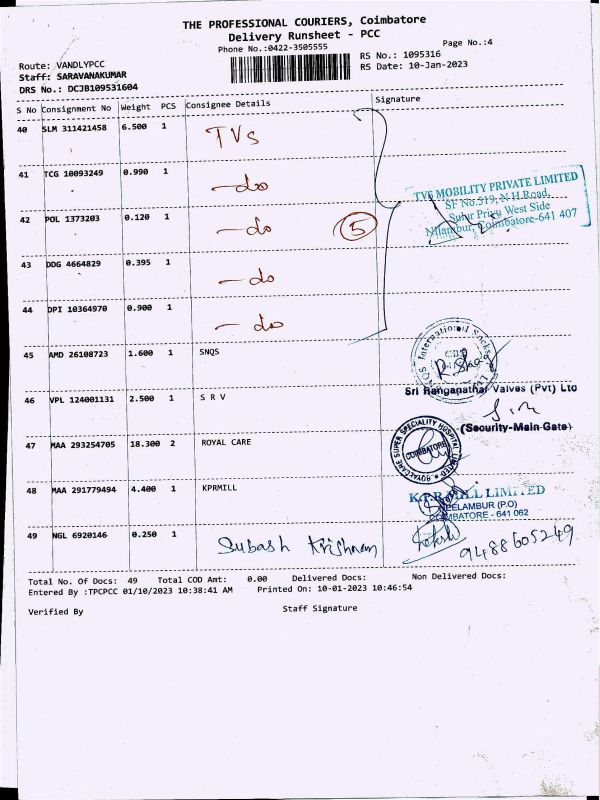 THE PROFESSIONAL COURIERS, Coimbatore
Delivery Runsheet - PCC
Phone No.:0422-3505555
Page No.:4
Route: VANDLYPCC
RS No.: 1095316
Staff: SARAVANAKUMAR
RS Date: 10-Jan-2023
DRS No.: DCJB109531604
S No Consignment No Weight PCS Consignee Details Signature
40 SLM 311421458 6.500 1 TVS
41 TCG 10093249 0.990 1 -do
TVS MOBILITY PRIVATE LIMITED
SF No.519, N.H.Road,
Sulur Pirivu West Side
Nilambur, Coimbatore-641 407
42 POL 1373203 0.120 1 -do 5
43 DDG 4664829 0.395 1 -do
44 DPI 10364970 0.900 1 -do
45 AMD 26108723 1.600 1 SNQS
SNQS International Socks
46 VPL 124001131 2.500 1 S R V
Sri Ranganathar Valves (Pvt) Ltd
(Security-Main Gate)
47 MAA 293254705 18.300 2 ROYAL CARE
ROYALCARE SUPER SPECIALITY HOSPITAL LIMITED
COIMBATORE
48 MAA 291779494 4.400 1 KPRMILL
K.P.R. MILL LIMITED
NEELAMBUR (P.O)
COIMBATORE - 641 062
49 NGL 6920146 0.250 1 Subash Krishnan
9488605249
Total No. Of Docs: 49 Total COD Amt: 0.00 Delivered Docs: Non Delivered Docs:
Entered By :TPCPCC 01/10/2023 10:38:41 AM Printed On: 10-01-2023 10:46:54
Verified By Staff Signature